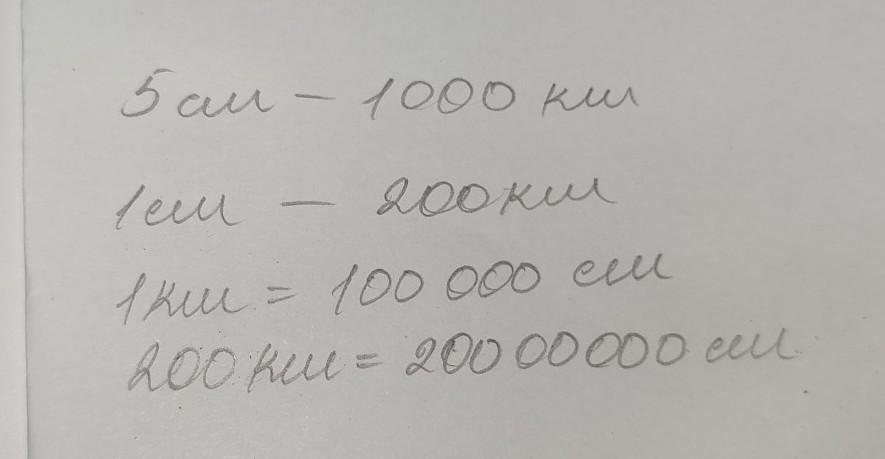 5 см – 1000 км
1 см – 200 км
1 км = 100 000 см
200 км = 20000000 см